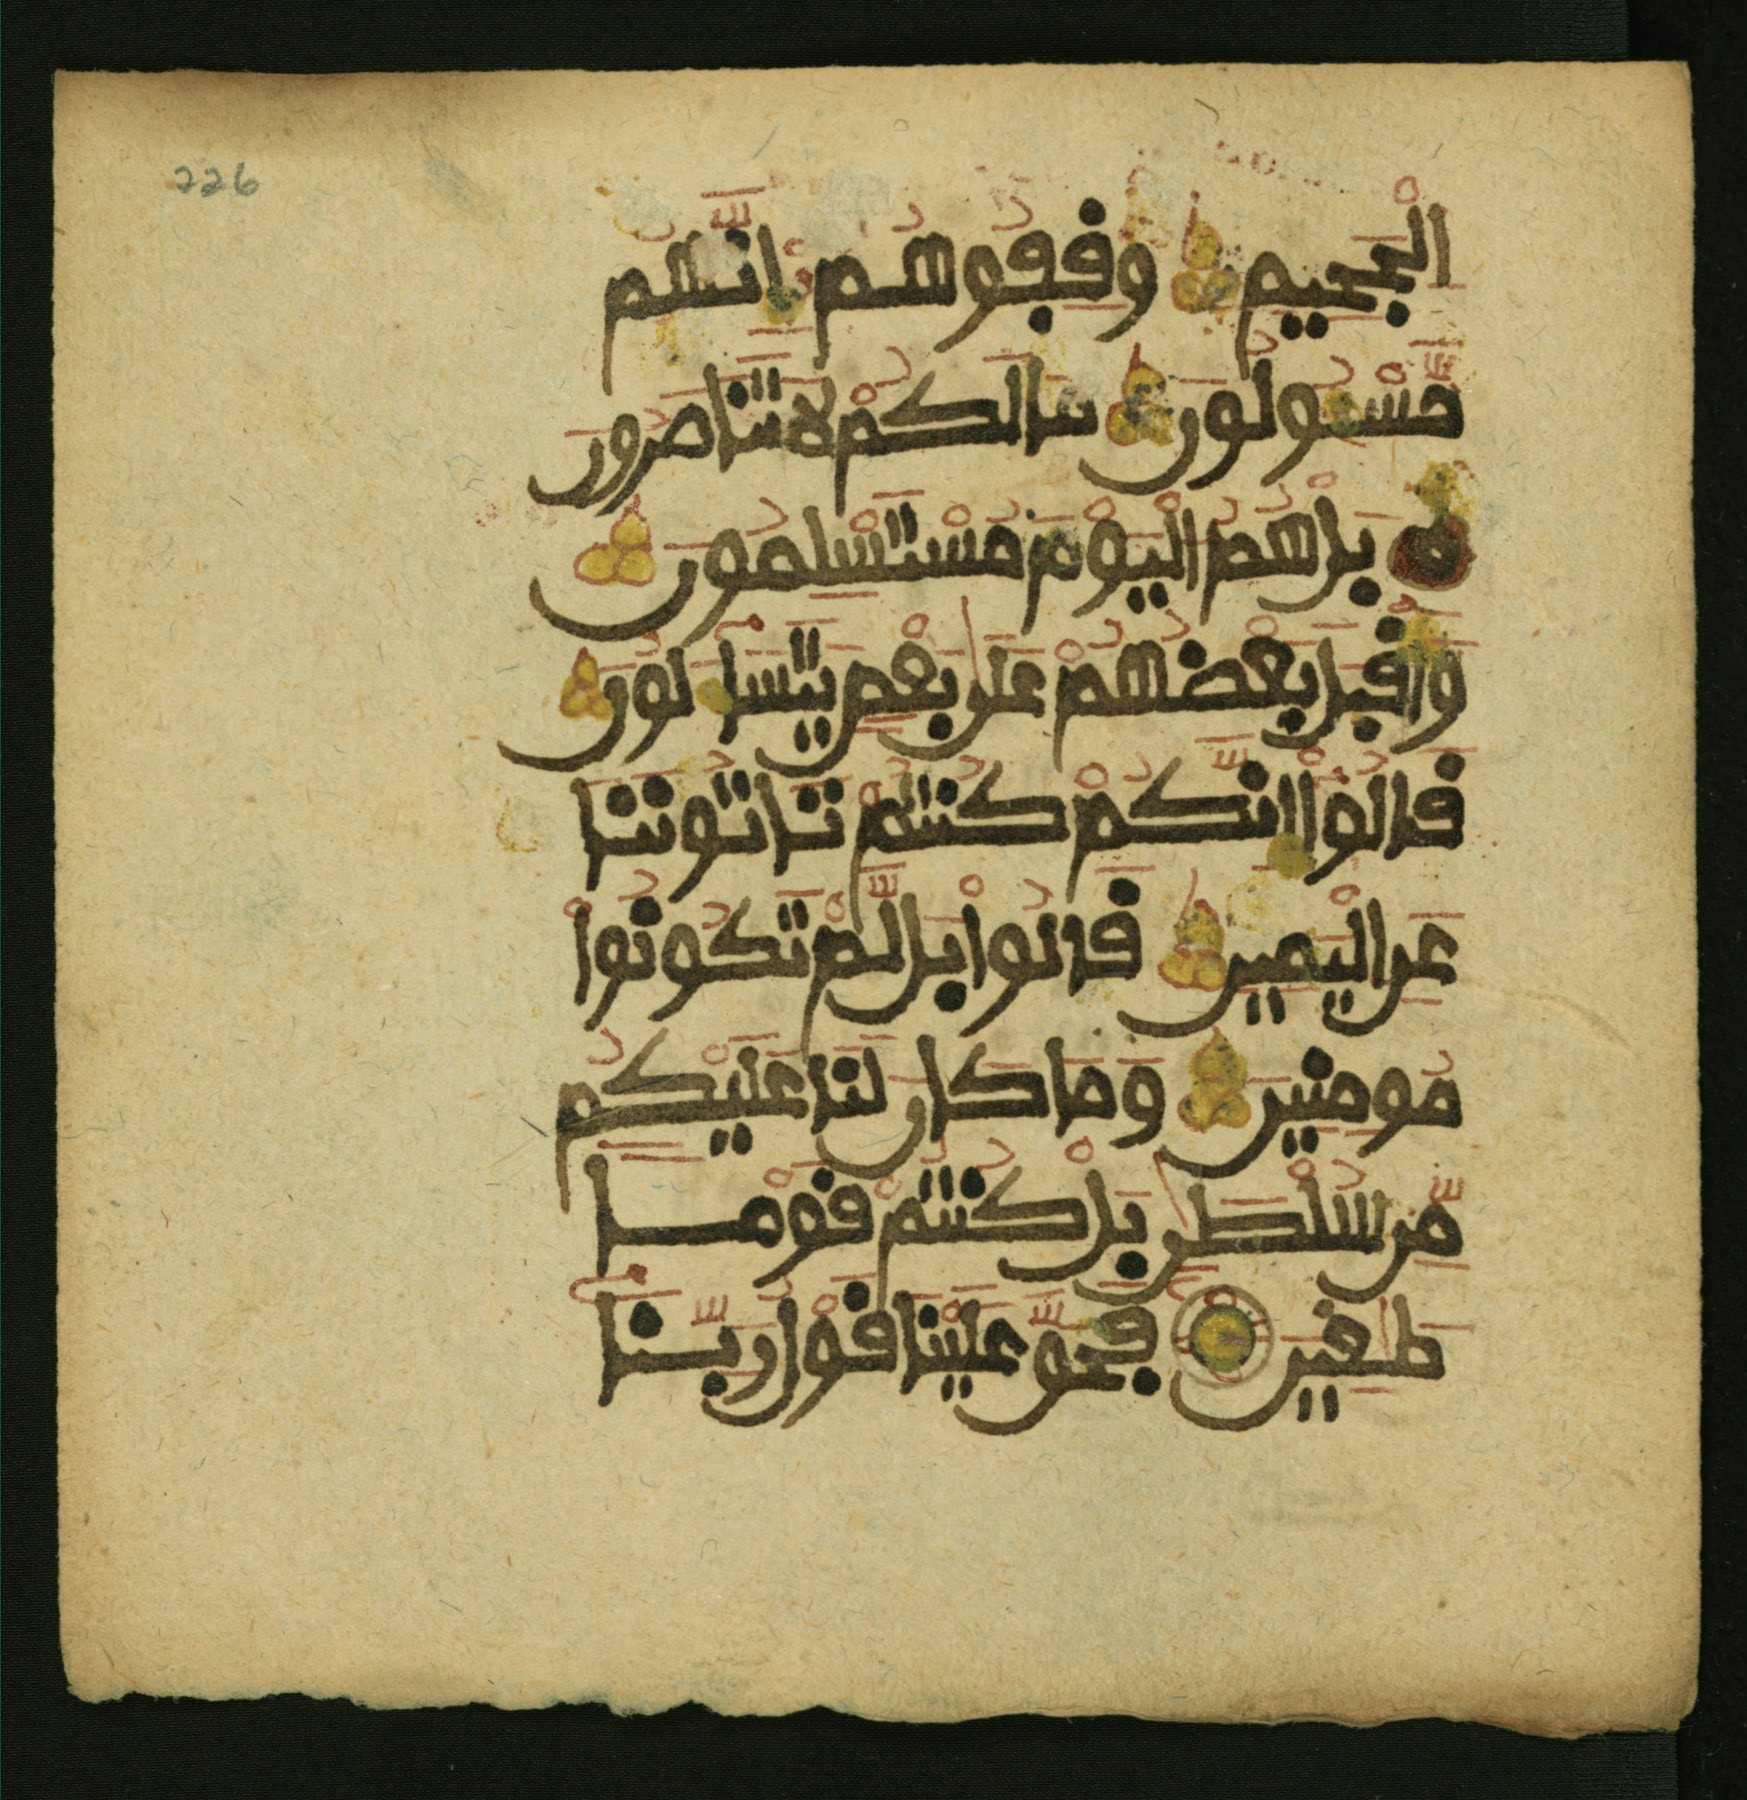 226
الْجَحِيمِ وَفِفُوهُمُ إِنَّهُم
مَّسْـُٔولُونَ مَا لَكُمْ لَا تَنَاصَرُونَ
بَلْ هُمُ الْيَوْمَ مُسْتَسْلِمُونَ
وَأَقْبَلَ بَعْضُهُمْ عَلَىٰ بَعْضٍ يَتَسَآءَلُونَ
قَالُوٓاْ إِنَّكُمْ كُنتُمْ تَاتُونَنَا
عَنِ الْيَمِينِ قَالُواْ بَل لَّمْ تَكُونُواْ
مُومِنِينَ وَمَا كَانَ لَنَا عَلَيْكُم
مِّن سُلْطَٰنٍ بَلْ كُنتُمْ قَوْمًا
طَٰغِينَ فَحَقَّ عَلَيْنَا قَوْلُ رَبِّنَآ